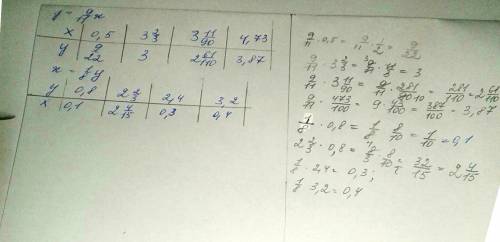 y = 9/11 x
x | 0,5 | 3 2/3 | 3 11/90 | 4,73
y | 9/22 | 3 | 2 61/110 | 3,87
x = 1/8 y
y | 0,8 | 2 2/3 | 2,4 | 3,2
x | 0,1 | 2 2/15 | 0,3 | 0,4
9/11 · 0,5 = 9/11 · 1/2 = 9/22
9/11 · 3 2/3 = 9/11 · 11/3 = 3
9/11 · 3 11/90 = 9/11 · 281/90 = 281/110 = 2 61/110
9/11 · 473/100 = 9 · 43/100 = 387/100 = 3,87
1/8 · 0,8 = 1/8 · 8/10 = 1/10 = 0,1
2 2/3 · 0,8 = 8/3 · 8/10 = 32/15 = 2
1/8 · 2,4 = 0,3;
1/8 3,2 = 0,4